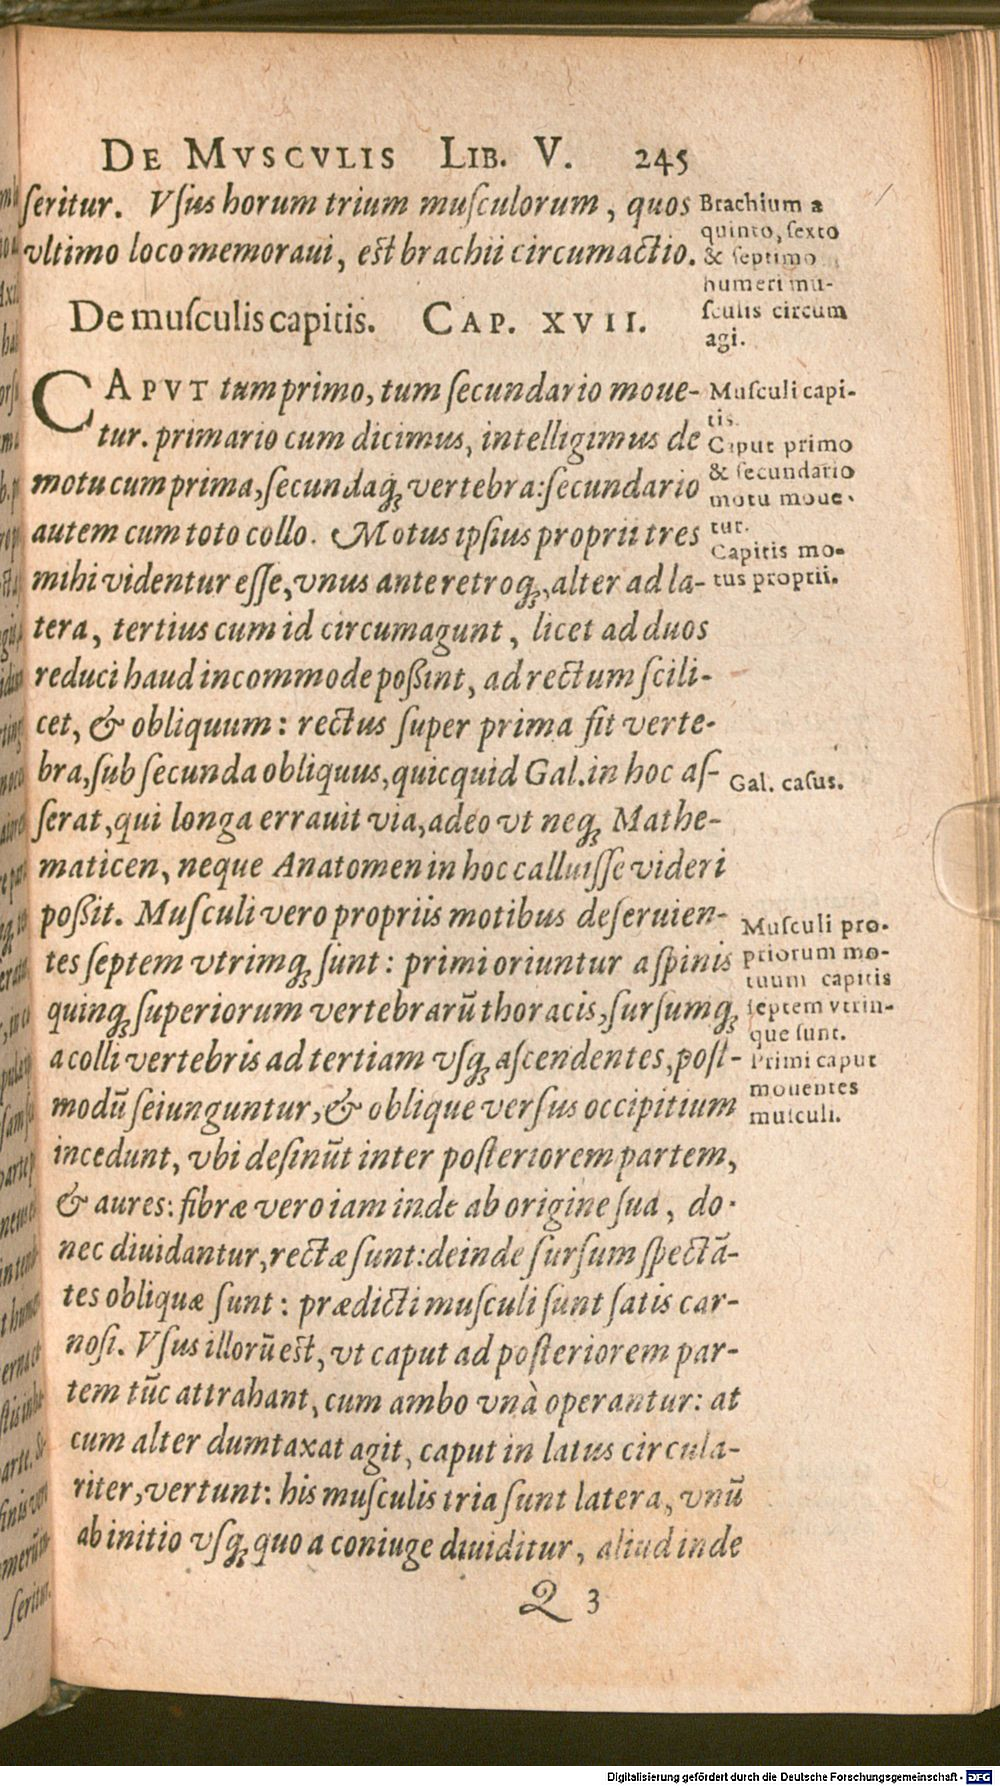 DE MVSCVLIS LIB. V. 245
ſeritur. Vſus horum trium muſculorum, quos
vltimo loco memoraui, est brachii circumactio.
Brachium a
quinto, ſexto
& ſeptimo
humeri mu-
ſculis circum
agi.
De muſculis capitis. CAP. XVII.
CAPVT tum primo, tum ſecundario moue-
tur. primario cum dicimus, intelligimus de
motu cum prima, ſecundaq́; vertebra: ſecundario
autem cum toto collo. Motus ipſius proprii tres
mihi videntur eſſe, vnus ante retroq́;, alter ad la-
tera, tertius cum id circumagunt, licet ad duos
reduci haud incommode poßint, ad rectum ſcili-
cet, & obliquum: rectus ſuper prima fit verte-
bra, ſub ſecunda obliquus, quicquid Gal. in hoc aſ-
ſerat, qui longa errauit via, adeo vt neq́; Mathe-
maticen, neque Anatomen in hoc calluiſſe videri
poßit. Muſculi vero propriis motibus deſeruien-
tes ſeptem vtrimq́; ſunt: primi oriuntur a ſpinis
quinq́; ſuperiorum vertebrarū thoracis, ſurſumq́;
a colli vertebris ad tertiam vſq́; aſcendentes, poſt-
modū ſeiunguntur, & oblique verſus occipitium
incedunt, vbi deſinūt inter poſteriorem partem,
& aures: fibræ vero iam inde ab origine ſua, do-
nec diuidantur, rectæ ſunt: deinde ſurſum ſpectā-
tes obliquæ ſunt: prædicti muſculi ſunt ſatis car-
noſi. Vſus illorū est, vt caput ad poſteriorem par-
tem tūc attrahant, cum ambo vnà operantur: at
cum alter dumtaxat agit, caput in latus circula-
riter, vertunt: his muſculis tria ſunt latera, vnū
ab initio vſq́; quo a coniuge diuiditur, aliud inde
Muſculi capi-
tis.
Caput primo
& ſecundario
motu moue-
tur.
Capitis mo-
tus proprii.
Gal. caſus.
Muſculi pro-
priorum mo-
tuum capitis
ſeptem vtrin-
que ſunt.
Primi caput
mouentes
muſculi.
Q 3
Digitalisierung gefördert durch die Deutsche Forschungsgemeinschaft - DFG